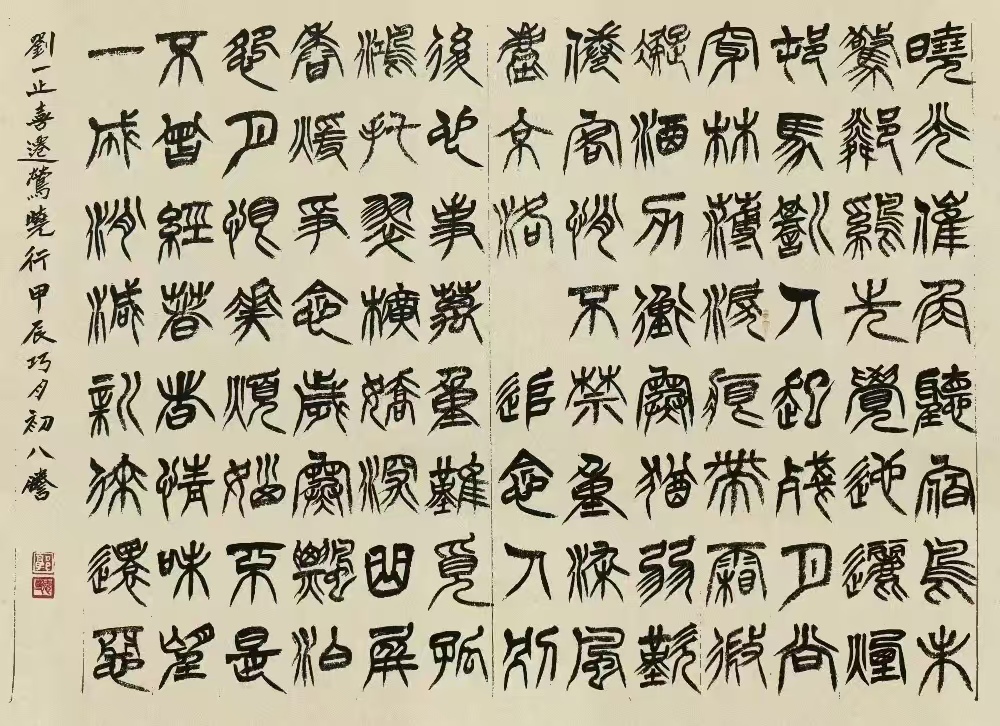 曉光催角聽宿鳥未
驚鄰鷄先覺迤邐煙
邨馬嘶人起殘月尚
穿林薄淚痕帶霜微
凝酒力衝寒猶弱歎
倦客悄不禁重染風
塵京洛 追念人別
後心事萬重難覓孤
鴻托翠幌嬌深曲屏
香煖爭念歲寒飄泊
怨月恨花煩惱不是
不曾經著者情味望
一成消減新來還惡
劉一止喜遷鶯曉行甲辰巧月初八謄